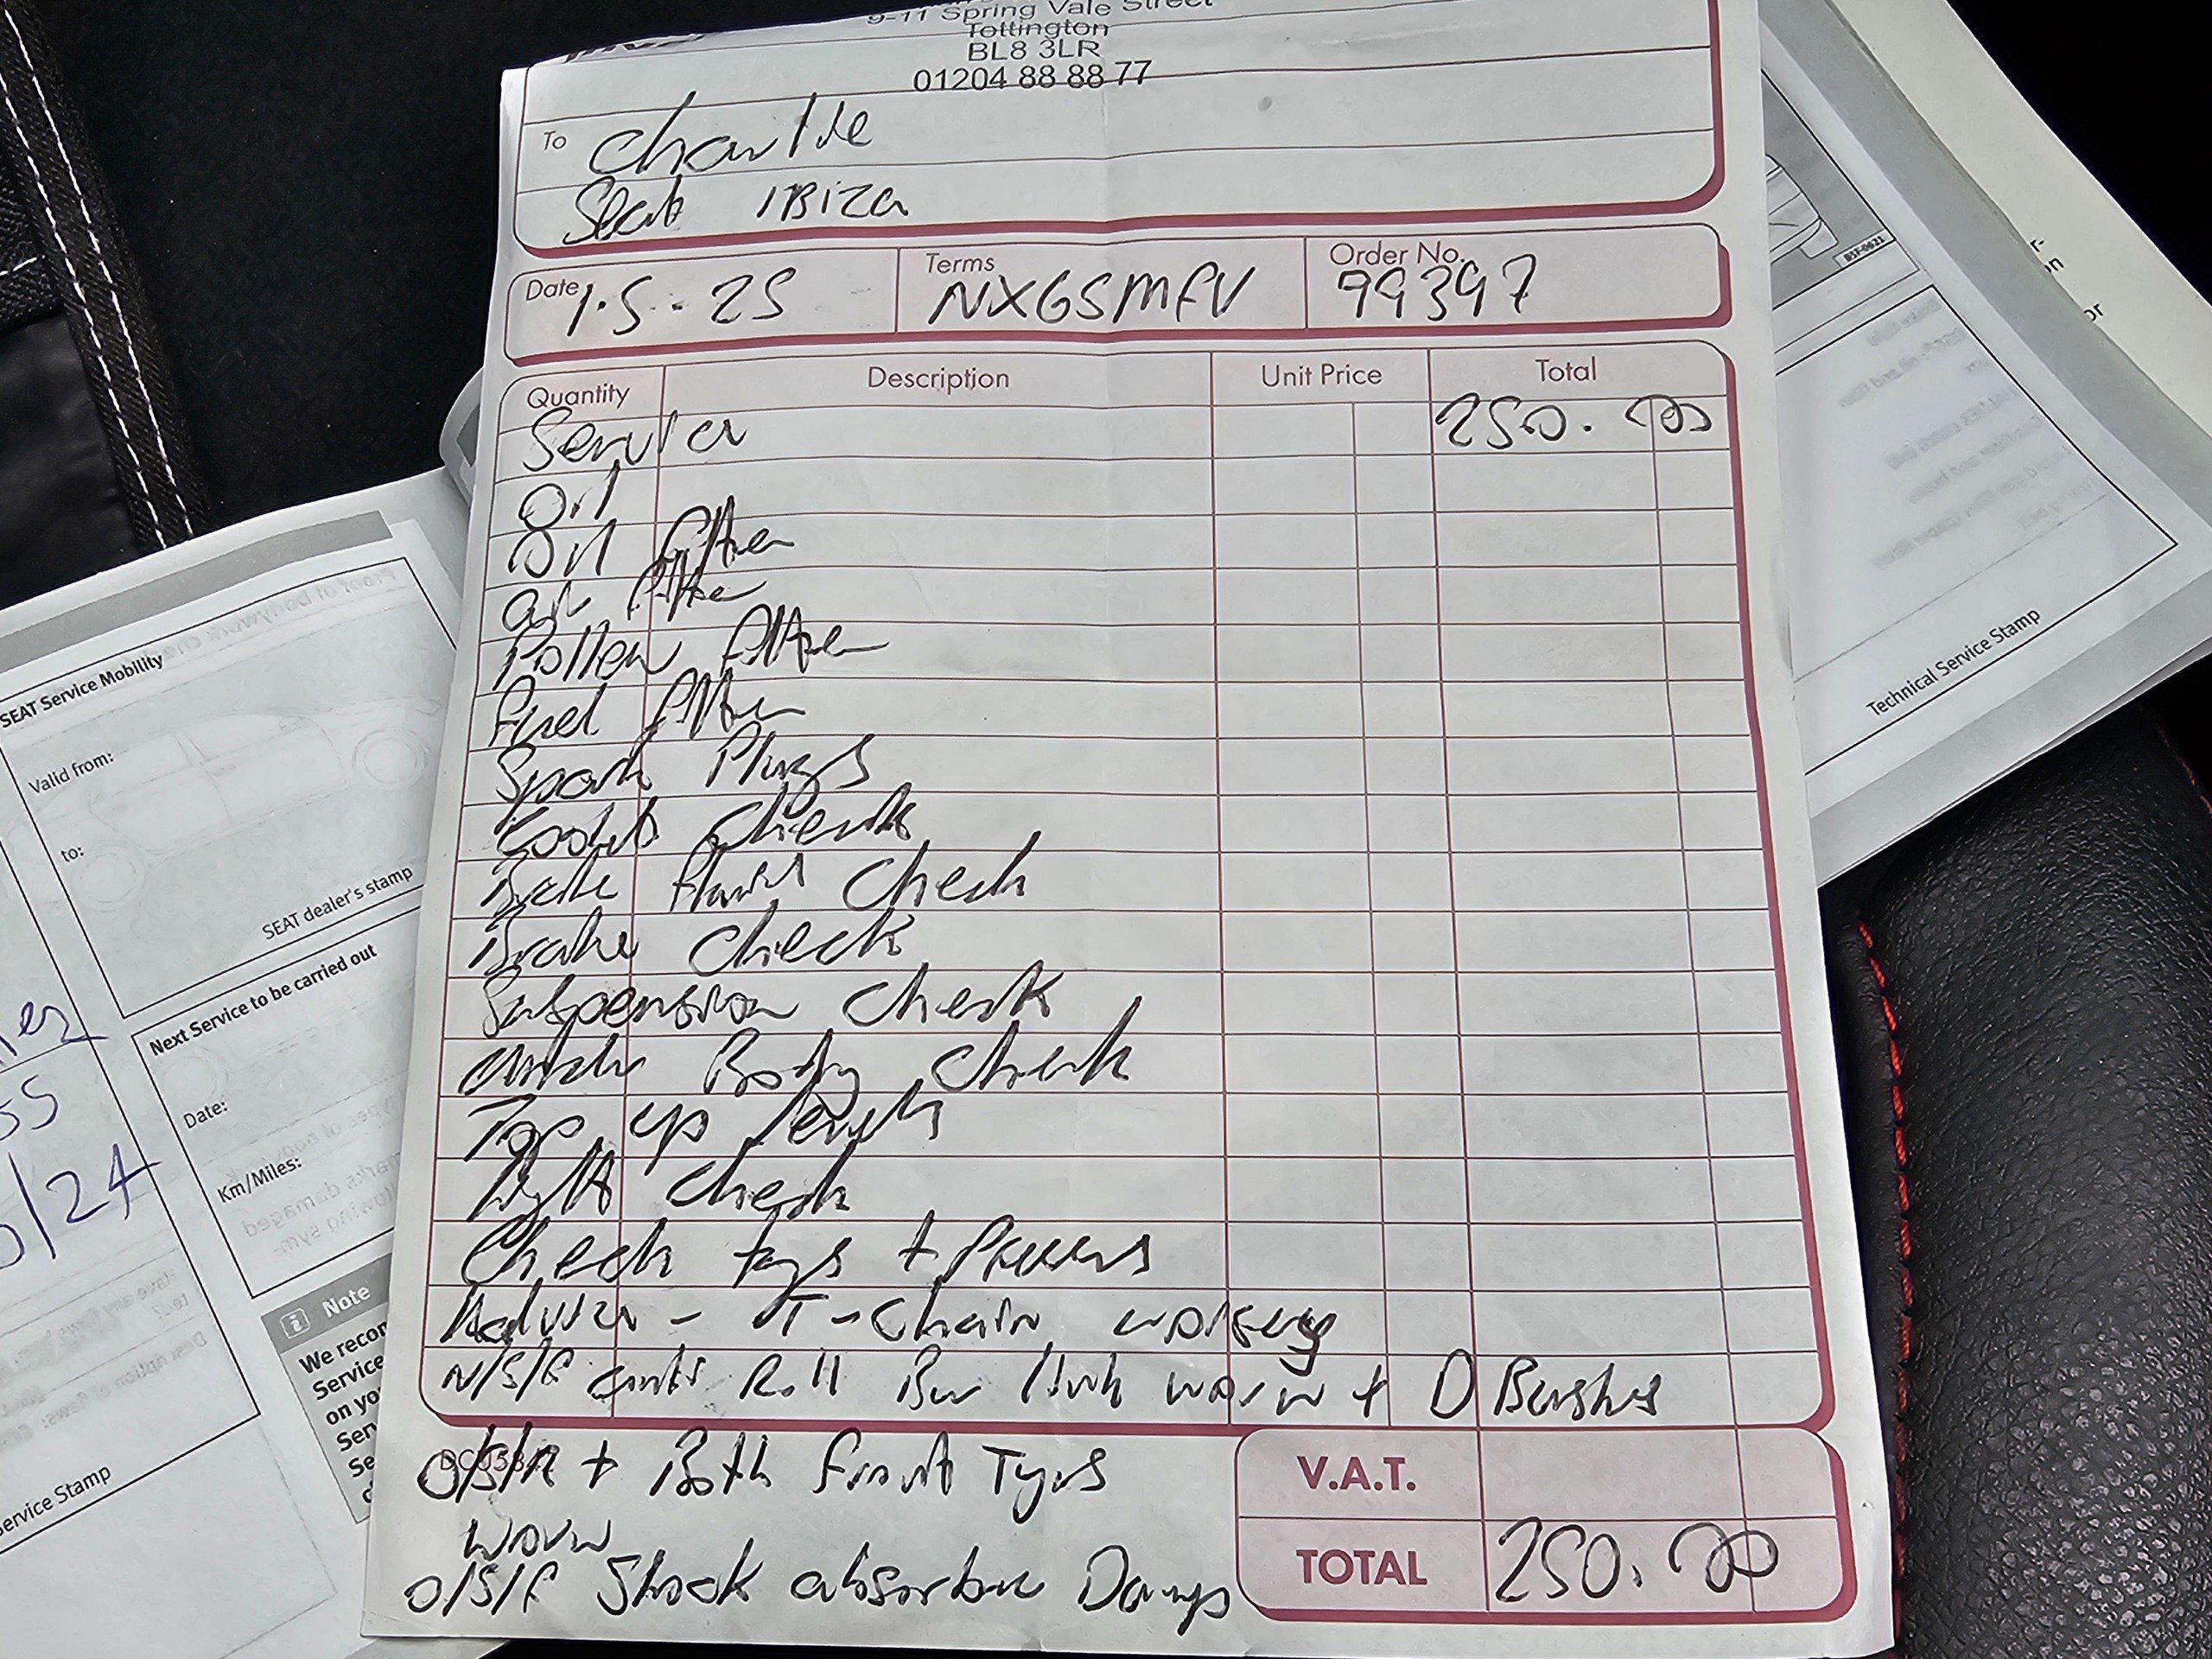 9-11 Spring Vale Street
Tottington
BL8 3LR
01204 88 88 77
To Charlie
Seat IBIZA
Date 1.5.25
Terms NX65MFV
Order No. 99397
Quantity Description Unit Price Total
Service 250.00
Oil
Oil filter
air filter
Pollen filter
fuel filter
Spark Plugs
Check
Brake fluid Check
Brake Check
Suspension Check
under Body Check
Top up levels
Light Check
Check tyres +
Advise - T-Chain
N/S/F Roll Bar link worn + D Bushes
O/S/R + Both front Tyres
worn
O/S/F Shock absorber Damp
V.A.T.
TOTAL 250.00
SEAT Service Mobility
Valid from:
to:
SEAT dealer's stamp
Next Service to be carried out
Date:
Km/Miles:
Note
We recom
Service
on yo
Ser
Se
Service Stamp
55
/24
Technical Service Stamp
B5F-0621